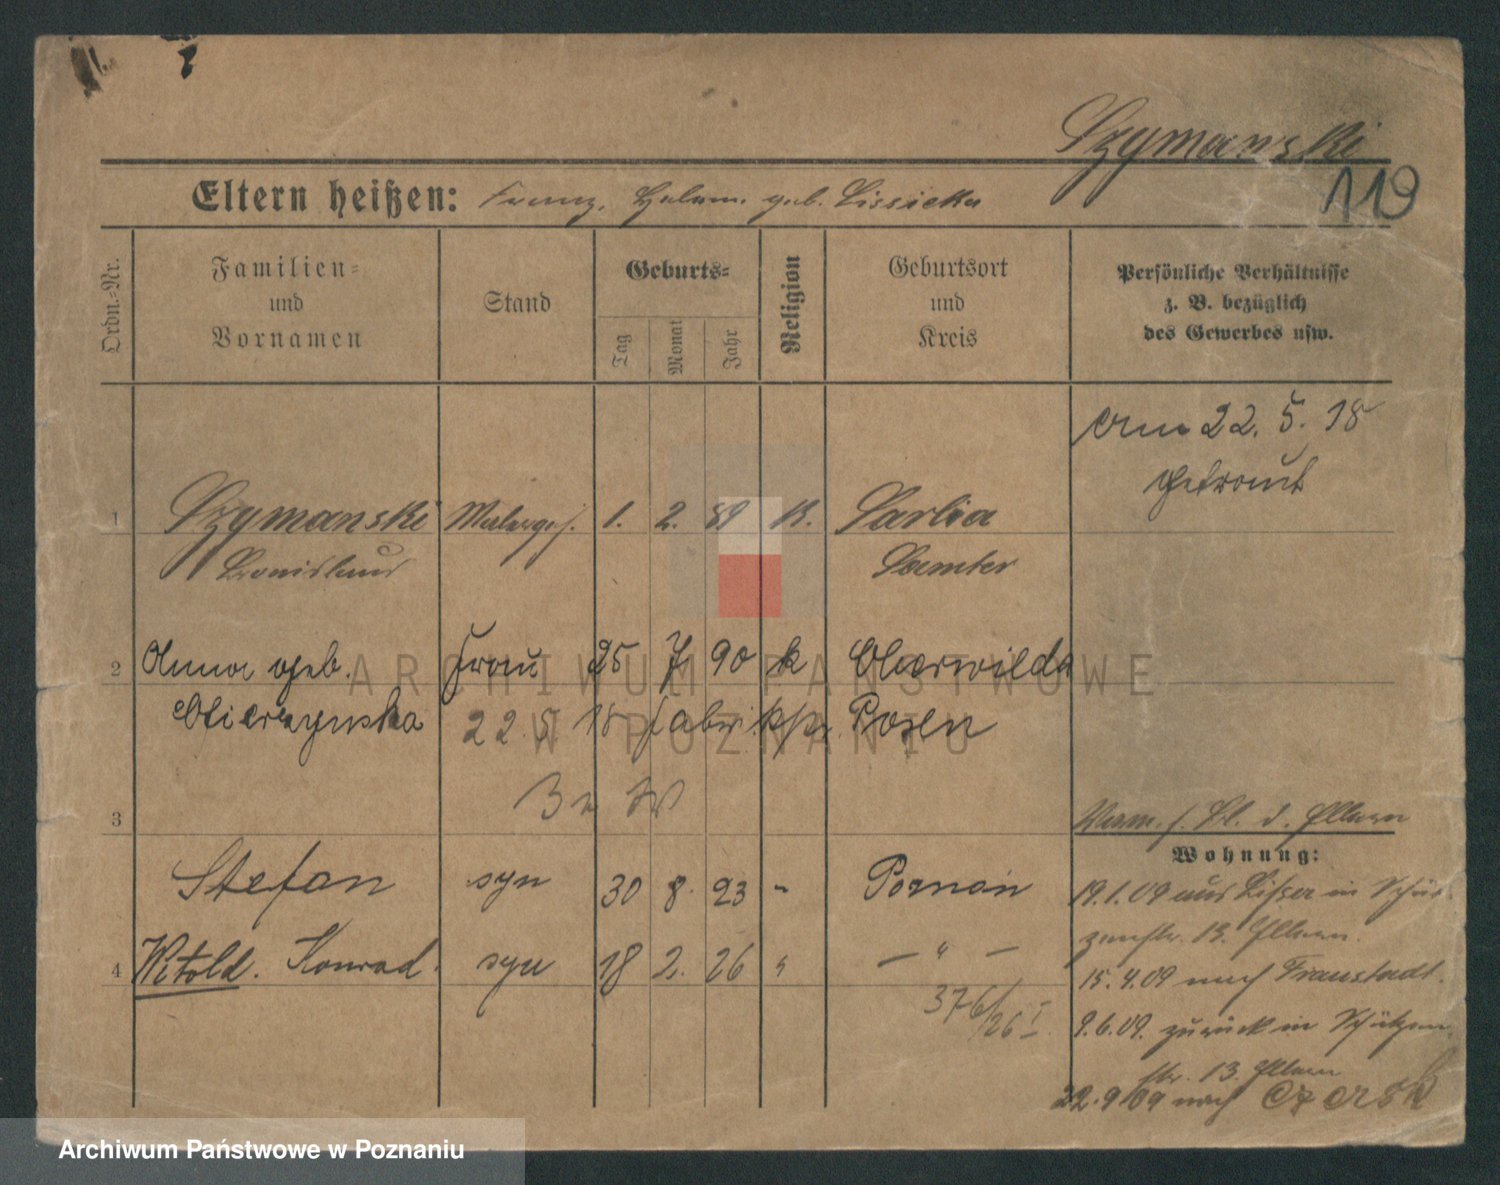 Szymanski
119
Eltern heißen: Franz, Helen. geb. Lissicka
Ordn.=Nr.
Familien=
und
Vornamen
Stand
Geburts=
Tag
Monat
Jahr
Religion
Geburtsort
und
Kreis
Persönliche Verhältnisse
z. B. bezüglich
des Gewerbes usw.
Am 22. 5. 18
getraut
1 Szymanski Malerges. 1. 2. 89 K. Sarbia
Bronislaus Samter
2 Anna geb. Frau 25 7 90 k Oberwilda
22. 5 18 Posen
3
Stefan syn 30 8. 23 " Poznań
4 Witold. Konrad. syn 18 2. 26 " — " —
376/26 I
Wohnung:
19.1.09 aus Lissa in Schüt-
zenstr. 13. Eltern.
15.4.09 nach Fraustadt.
9.6.09. zurück in Schützen
str. 13. Eltern
22.9.09 nach Czersk
ARCHIWUM PAŃSTWOWE
W POZNANIU
Archiwum Państwowe w Poznaniu